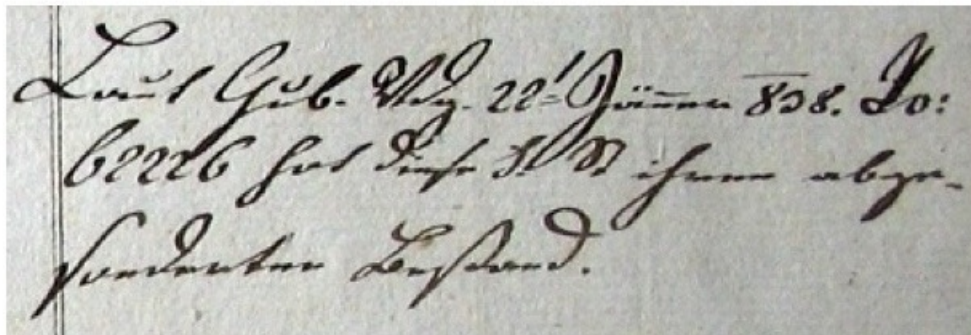 Laut Gub. Vdg. 22' Jänner 838. No:
62226 hat diese H. St. ihren abge-
sonderten Bestand.